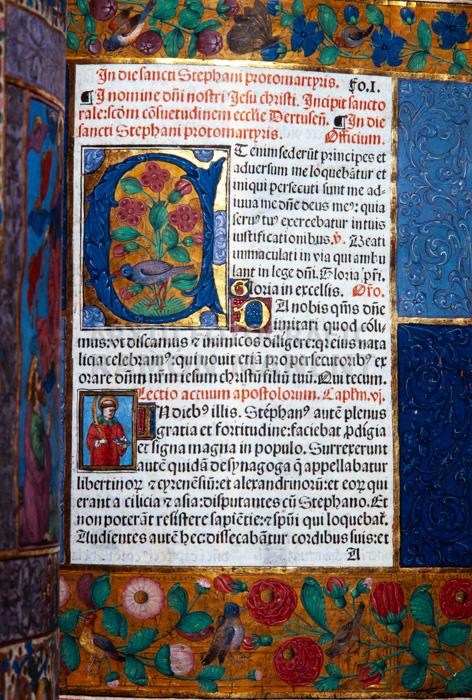 In die sancti Stephani protomartyris. Fo.I.
¶ In nomine dñi nostri Jesu christi. Incipit sancto
rale: scðm cõsuetudinem ecclie Dertuseñ. ¶ In die
sancti Stephani protomartyris. Officium.
T enim sederũt principes et
aduersum me loquebãtur et
iniqui persecuti sunt me ad-
iuua me dñe deus me⁹: quia
seru⁹ tu⁹ exercebatur in tuis
iustificationibus. ℣. Beati
immaculati in via qui ambu
lant in lege dñi. Gloria pr̃i.
Gloria in excelsis. Oŕo.
DA nobis q̃s dñe
imitari quod coli-
mus: vt discamus ⁊ inimicos diligere: qr eius nata
licia celebram⁹: qui nouit etiã pro persecutorib⁹ ex
orare dñm nr̃m iesum christũ filiũ tuũ. Qui tecum.
Lectio actuum apostolorum. Caplm. vj.
IN dieb⁹ illis. Stephan⁹ autẽ plenus
gratia et fortitudine: faciebat ꝓdigia
et signa magna in populo. Surrexerunt
autẽ quidã de synagoga q̃ appellabatur
libertinorꝝ ⁊ cyrenẽsiũ: et alexandrinorũ: et eorꝝ qui
erant a cilicia ⁊ asia: disputantes cũ Stephano. Et
non poterãt resistere sapiẽtie: ⁊ spũi qui loquebat̃.
Audientes autẽ hec: dissecabãtur cordibus suis: et
A